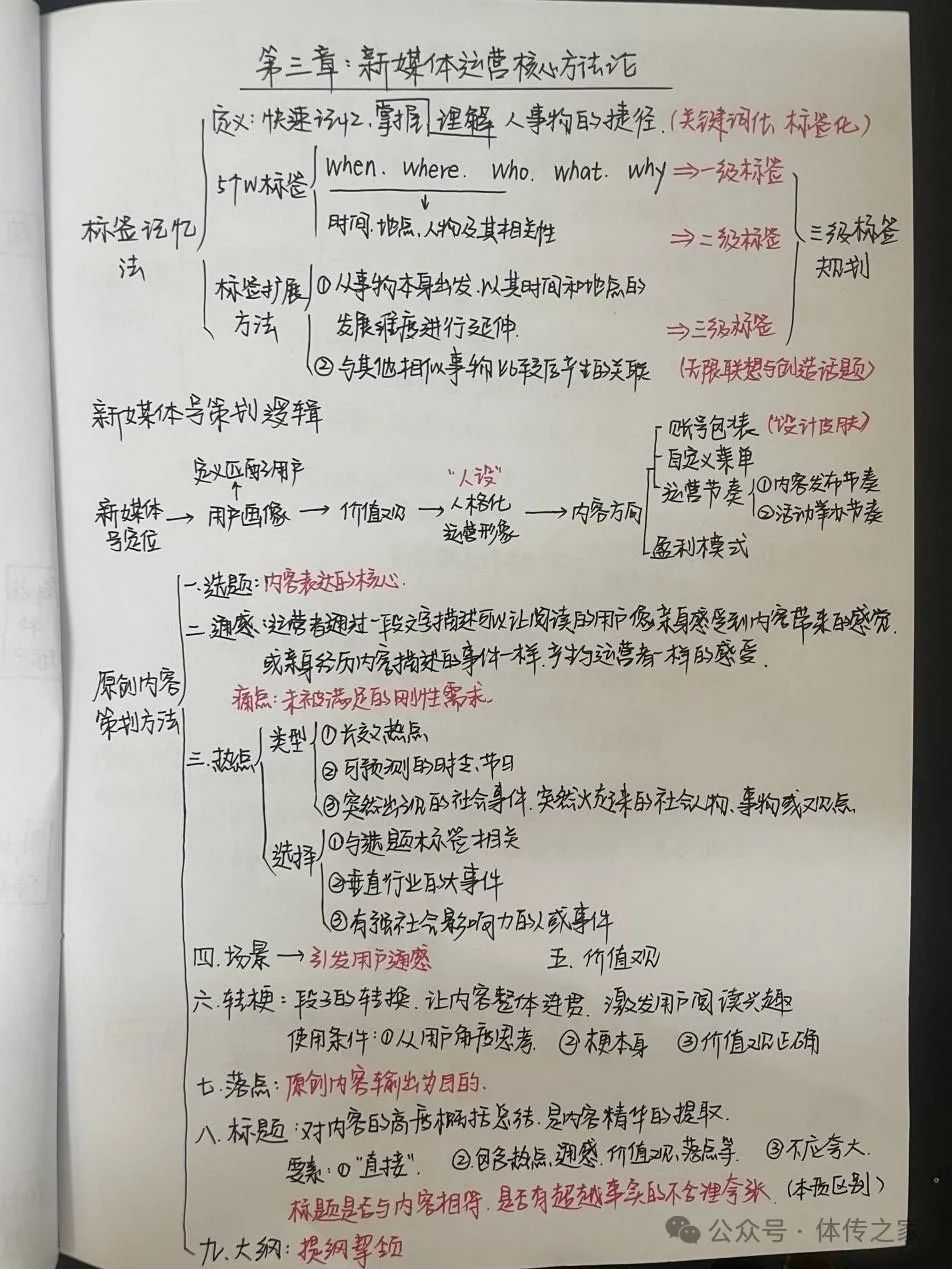 第三章：新媒体运营核心方法论
定义：快速记忆、掌握 理解 人事物的捷径.(关键词化、标签化)
5个W标签 when. where. who. what. why ⇒一级标签
时间.地点.人物及其相关性 ⇒二级标签
标签记忆法
三级标签规划
标签扩展方法 ①从事物本身出发.以其时间和地点的
发展维度进行延伸. ⇒三级标签
②与其他相似事物比较后产生的关联 (无限联想与创造话题)
新媒体号策划逻辑
新媒体号定位 → 用户画像 → 价值观 → 人格化运营形象 → 内容方向
定义匹配的用户
"人设"
账号包装 (设计皮肤)
自定义菜单
运营节奏 ①内容发布节奏
②活动举办节奏
盈利模式
原创内容策划方法
一.选题：内容表达的核心.
二.通感：运营者通过一段文字描述可以让阅读的用户像亲身感受到内容带来的感觉.
或亲身经历内容描述的事件一样.产生与运营者一样的感受.
痛点：未被满足的刚性需求.
三.热点 类型 ①长效热点
②可预测的时去、节日
③突然出现的社会事件.突然火起来的社会人物、事物或观点
选择 ①与选题标签相关
②垂直行业的大事件
③有强社会影响力的人或事件
四.场景 → 引发用户通感 五.价值观
六.转梗：段子的转换.让内容整体连贯.激发用户阅读兴趣
使用条件：①从用户角度思考. ②梗本身 ③价值观正确
七.落点：原创内容输出的目的.
八.标题：对内容的高度概括总结.是内容精华的提取.
要素：①"直接". ②包含热点、通感.价值观.落点等. ③不应夸大.
标题是否与内容相符.是否有超越事实的不合理夸张.(本质区别)
九.大纲：提纲挈领
公众号·体传之家